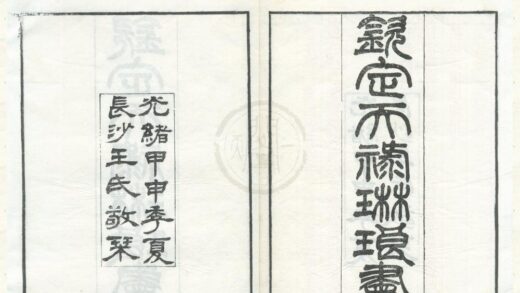 欽定天祿琳琅書
光緒甲申季夏
長沙王氏敬栞